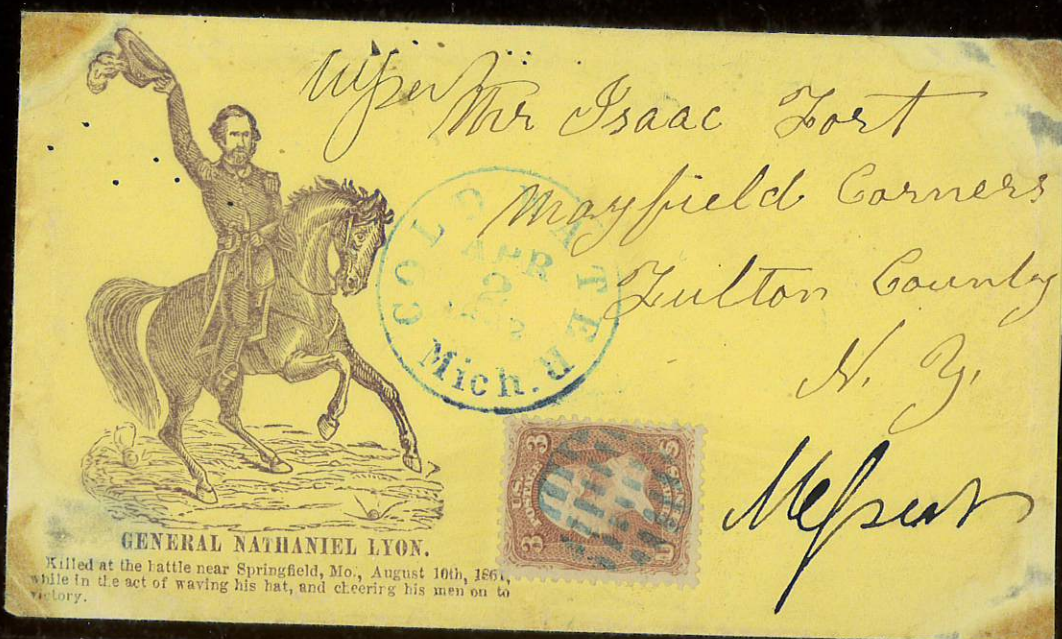 Mr Isaac Fort
Mayfield Corners
Fulton County
N. Y.
COLDWATER
APR
2
Mich.
3 3
U.S.
POSTAGE
GENERAL NATHANIEL LYON.
Killed at the battle near Springfield, Mo., August 10th, 1861,
while in the act of waving his hat, and cheering his men on to
victory.